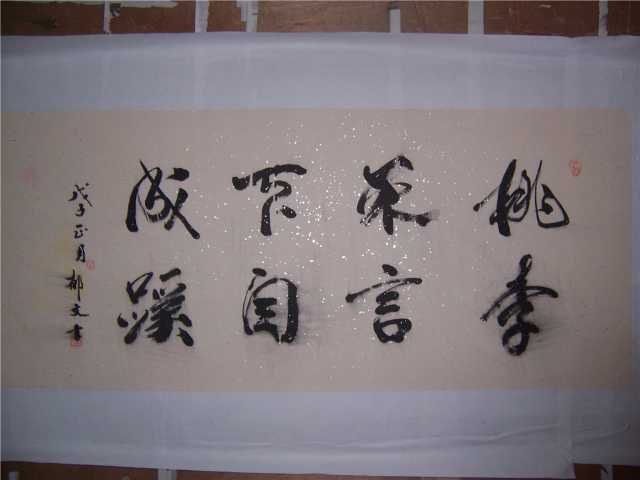 桃李
不言
下自
成蹊
戊子正月郁文書